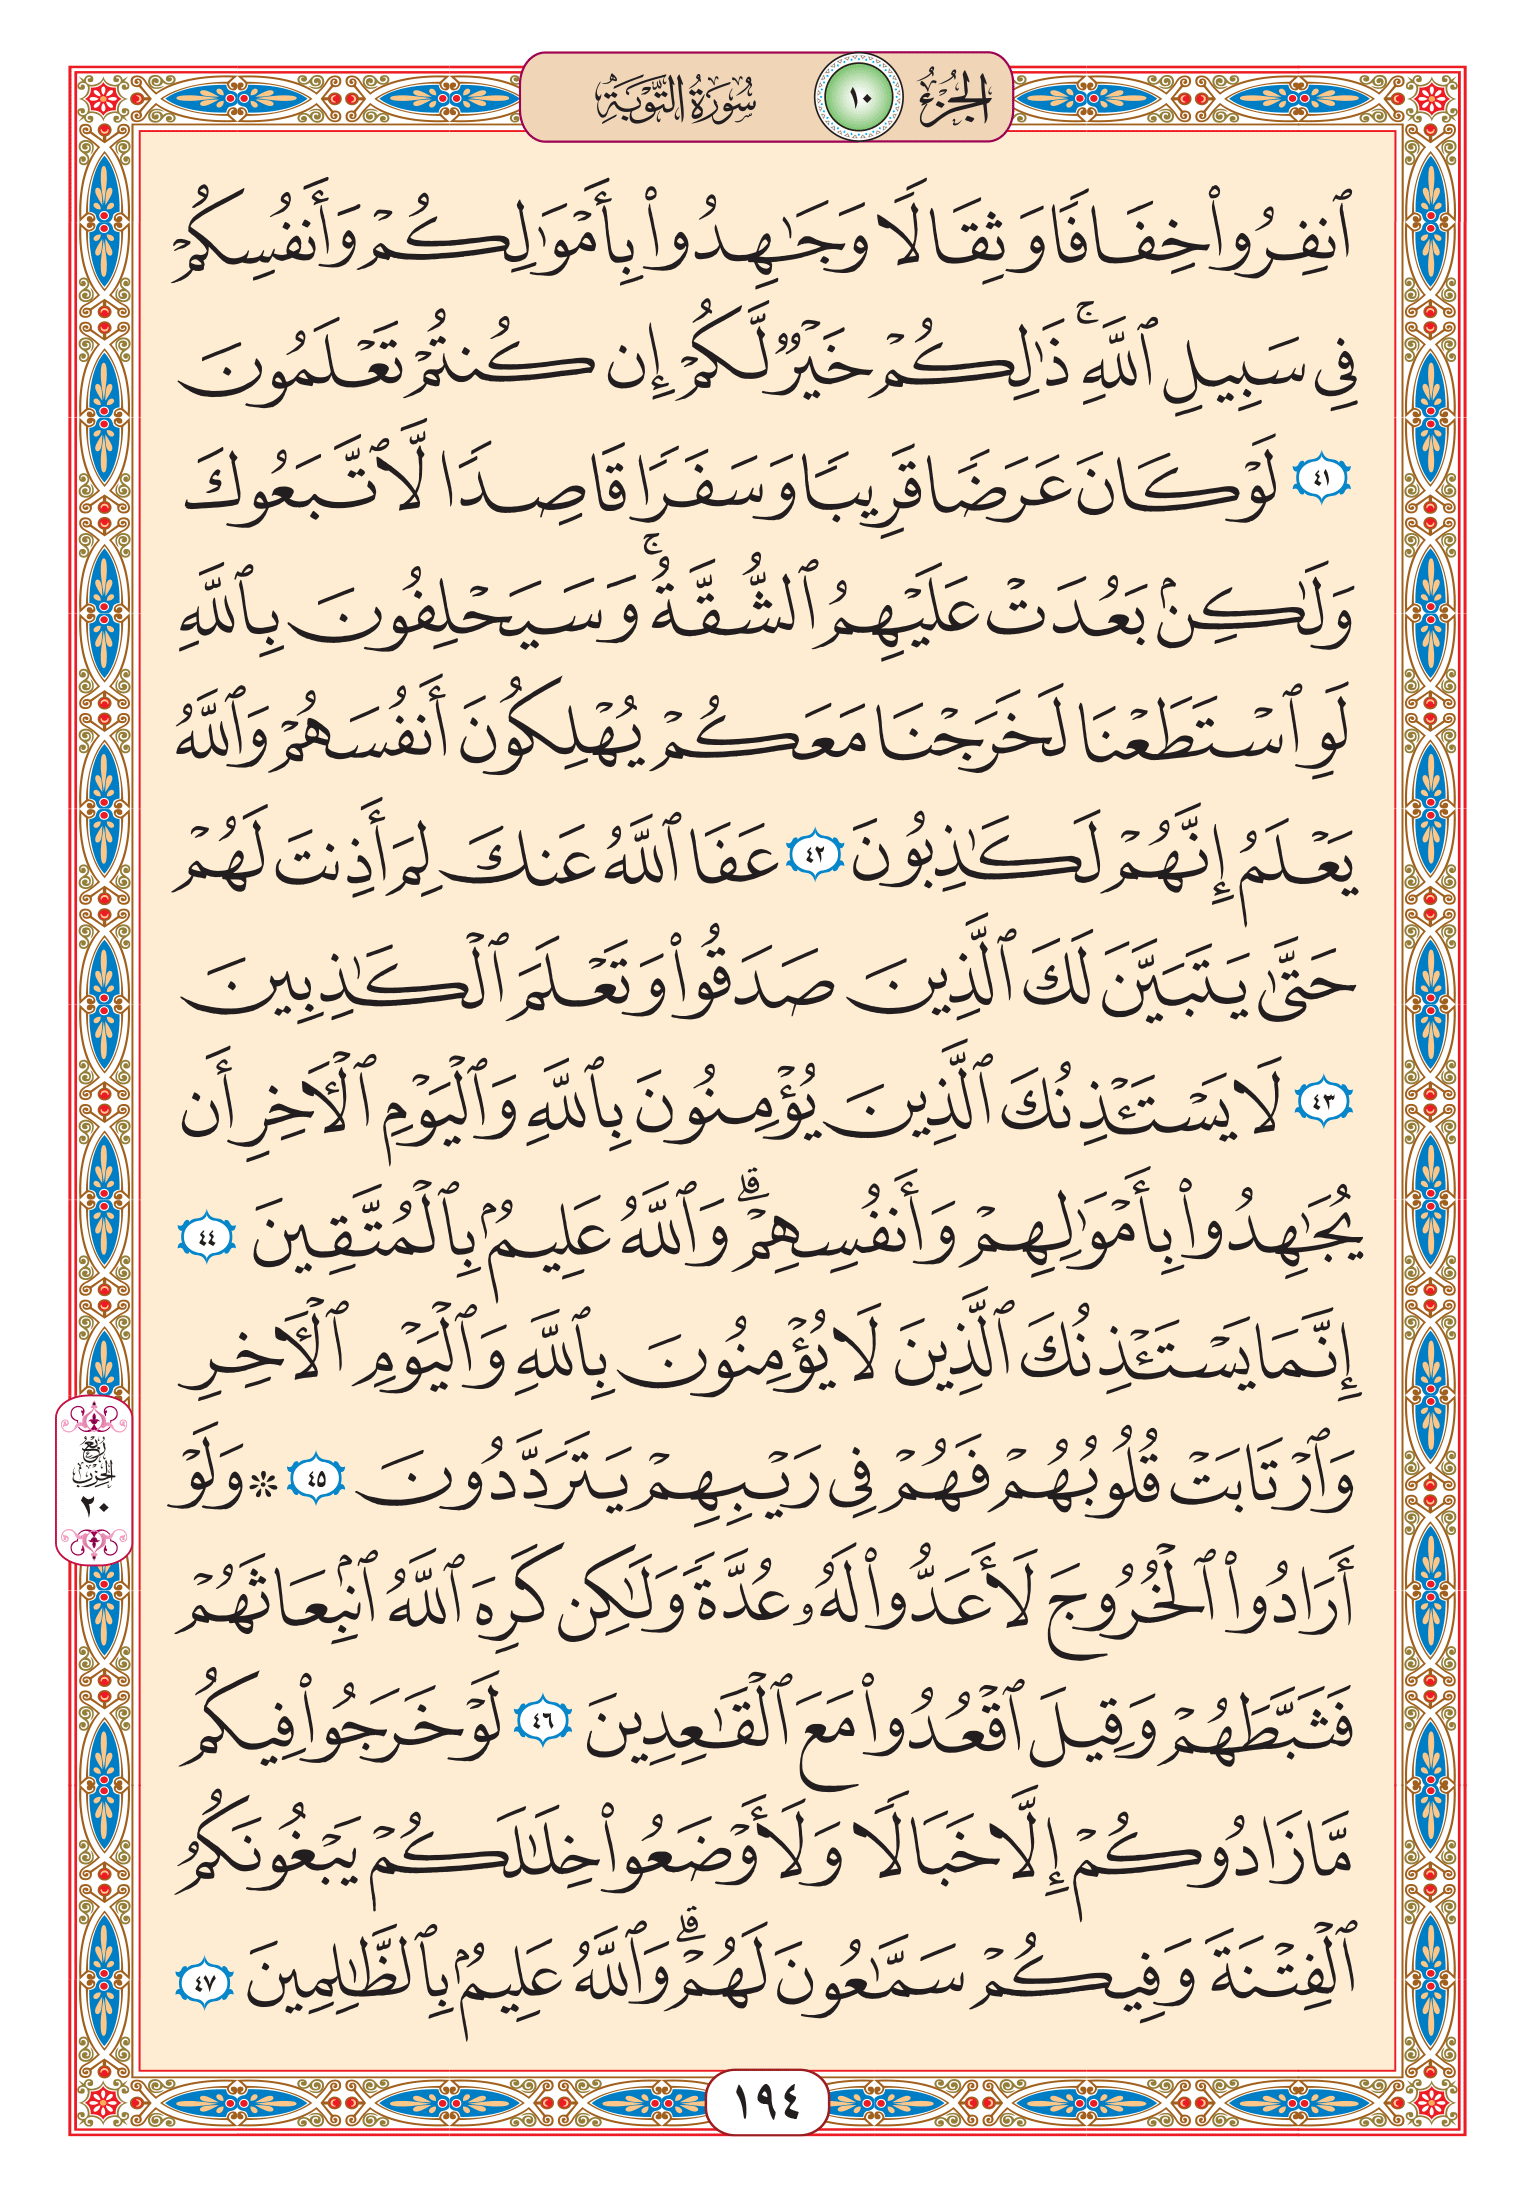 الجزء ١٠ سورة التوبة
ٱنفِرُوا۟ خِفَافًا وَثِقَالًا وَجَـٰهِدُوا۟ بِأَمْوَٰلِكُمْ وَأَنفُسِكُمْ
فِى سَبِيلِ ٱللَّهِ ۚ ذَٰلِكُمْ خَيْرٌ لَّكُمْ إِن كُنتُمْ تَعْلَمُونَ
٤١ لَوْ كَانَ عَرَضًا قَرِيبًا وَسَفَرًا قَاصِدًا لَّٱتَّبَعُوكَ
وَلَـٰكِنۢ بَعُدَتْ عَلَيْهِمُ ٱلشُّقَّةُ ۚ وَسَيَحْلِفُونَ بِٱللَّهِ
لَوِ ٱسْتَطَعْنَا لَخَرَجْنَا مَعَكُمْ يُهْلِكُونَ أَنفُسَهُمْ وَٱللَّهُ
يَعْلَمُ إِنَّهُمْ لَكَـٰذِبُونَ ٤٢ عَفَا ٱللَّهُ عَنكَ لِمَ أَذِنتَ لَهُمْ
حَتَّىٰ يَتَبَيَّنَ لَكَ ٱلَّذِينَ صَدَقُوا۟ وَتَعْلَمَ ٱلْكَـٰذِبِينَ
٤٣ لَا يَسْتَـْٔذِنُكَ ٱلَّذِينَ يُؤْمِنُونَ بِٱللَّهِ وَٱلْيَوْمِ ٱلْـَٔاخِرِ أَن
يُجَـٰهِدُوا۟ بِأَمْوَٰلِهِمْ وَأَنفُسِهِمْ ۗ وَٱللَّهُ عَلِيمٌۢ بِٱلْمُتَّقِينَ ٤٤
إِنَّمَا يَسْتَـْٔذِنُكَ ٱلَّذِينَ لَا يُؤْمِنُونَ بِٱللَّهِ وَٱلْيَوْمِ ٱلْـَٔاخِرِ
وَٱرْتَابَتْ قُلُوبُهُمْ فَهُمْ فِى رَيْبِهِمْ يَتَرَدَّدُونَ ٤٥ ۞ وَلَوْ
ربع الحزب ٢٠
أَرَادُوا۟ ٱلْخُرُوجَ لَأَعَدُّوا۟ لَهُۥ عُدَّةً وَلَـٰكِن كَرِهَ ٱللَّهُ ٱنۢبِعَاثَهُمْ
فَثَبَّطَهُمْ وَقِيلَ ٱقْعُدُوا۟ مَعَ ٱلْقَـٰعِدِينَ ٤٦ لَوْ خَرَجُوا۟ فِيكُم
مَّا زَادُوكُمْ إِلَّا خَبَالًا وَلَأَوْضَعُوا۟ خِلَـٰلَكُمْ يَبْغُونَكُمُ
ٱلْفِتْنَةَ وَفِيكُمْ سَمَّـٰعُونَ لَهُمْ ۗ وَٱللَّهُ عَلِيمٌۢ بِٱلظَّـٰلِمِينَ ٤٧
١٩٤